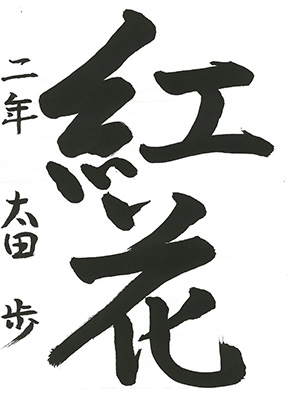 紅花
二年 太田 歩